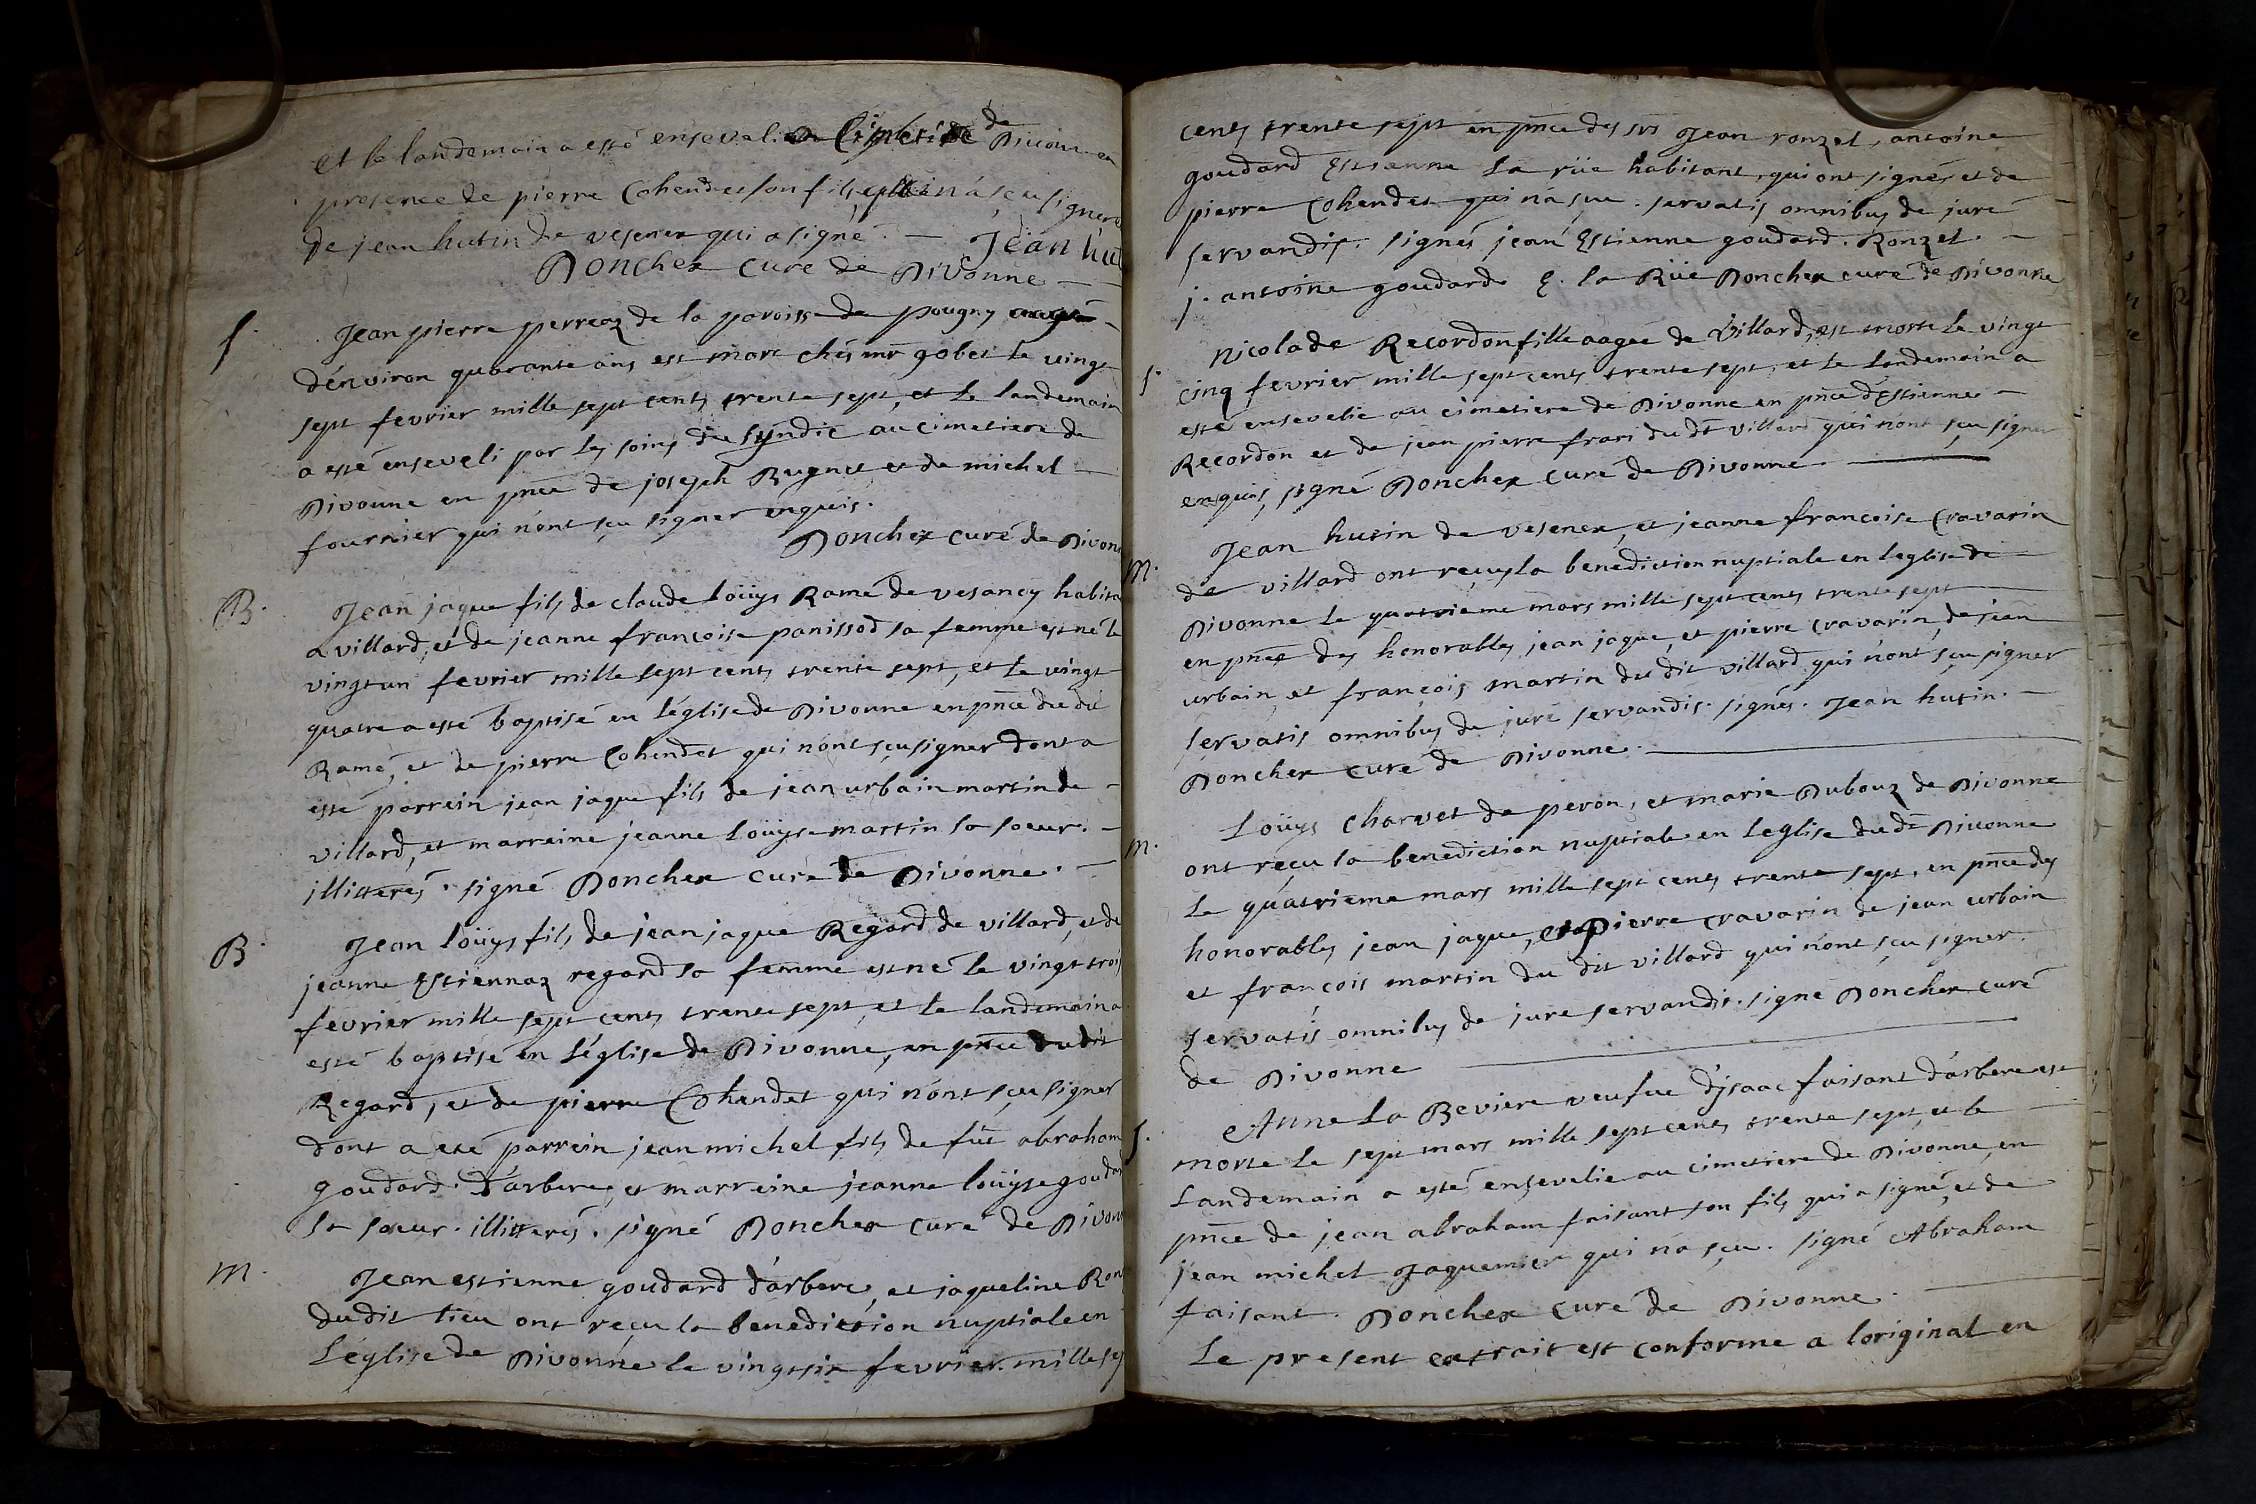 et le landemain a esté enseveli au cimetiere de Divonne en
presence de pierre Cohendet son fils, qui n'a sçu signer et
de jean hutin de vesenex qui a signé. — Jean hut
Donchex curé de Divonne —
S. Jean pierre perreaz de la paroisse de pougny aagé
d'environ quarante ans est mort chés mr gobet le vingt
sept fevrier mille sept cents trente sept, et le landemain
a esté enseveli par les soins du syndic au cimetiere de
Divonne en pnce de joseph Rugnet et de michel —
fournier qui n'ont sçu signer enquis.
Donchex curé de Divonn
B. Jean jaque fils de claude Loüys Ramé de vesancy habita
a villard, et de jeanne françoise panissod sa femme est né le
vingt un fevrier mille sept cents trente sept, et le vingt
quatre a esté baptisé en l'église de Divonne en pnce du dit
Ramé, et de pierre Cohendet qui n'ont sçu signer dont a
esté parrein jean jaque fils de jean urbain martin de —
villard, et marreine jeanne Loüyse martin sa soeur. —
illitterés. signé Donchex curé de Divonne. —
B. Jean loüys fils de jean jaque Regard de villard, et de
jeanne Estiennaz regard sa femme est né le vingt trois
fevrier mille sept cents trente sept, et le landemain a
esté baptisé en l'église de Divonne, en pnce du dit
Regard, et de pierre Cohendet qui n'ont sçu signer
dont a eté parrein jean michel fils de fût abraham
goudard. d'arbere, et marreine jeanne loüyse goudard
sa soeur. illitterés. signé Donchex curé de Divonn
M. Jean estienne goudard d'arbere, et jaqueline Ron
dudit lieu ont reçu la benediction nuptiale en
L'église de Divonne le vingt six fevrier mille sep
cents trente sept en pnce des srs Jean ronzet, antoine
goudard Estienne La rüe habitant, qui ont signés et de
pierre Cohendet qui n'a sçu. servatis omnibus de jure
servandis. signés jean Estienne goudard. Ronzet. —
j. antoine goudard. E. la Rüe Donchex curé de Divonne
S. Nicolade Recordon fille aagée de Villard, est morte le vingt
cinq fevrier mille sept cents trente sept, et le landemain a
esté ensevelie au cimetiere de Divonne en pnce d'Estienne —
Recordon et de jean pierre frari du dt villard qui n'ont sçu signer
enquis, signé Donchex curé de Divonne. —
M. Jean hutin de vesenex, et jeanne françoise Cravarin
de villard ont reçus la benediction nuptiale en leglise de
Divonne le quatrieme mars mille sept cents trente sept —
en pnce des honorables jean jaque, et pierre cravarin, de jean
urbain, et françois martin du dit villard qui n'ont sçu signer
servatis omnibus de jure servandis. signés. Jean hutin. —
Donchex curé de Divonne. —
M. Loüys Charvet de peron, et marie Dubouz de Divonne
ont reçu la benediction nuptiale en Leglise du dt Divonne
le quatrieme mars mille sept cents trente sept, en pnce des
honorables jean jaque, et Pierre cravarin de jean urbain
et françois martin du dit villard qui n'ont sçu signer.
servatis omnibus de jure servandis. signé Donchex curé
de Divonne —
S. Anne La Beviere veufve d'jsaac faisant d'arbere est
morte le sept mars mille sept cents trente sept, et le —
Landemain a esté ensevelie au cimetiere de Divonne, en
pnce de jean abraham faisant son fils, qui a signé, et de
jean michel Jaquemier qui n'a sçu. signé Abraham
faisant. Donchex curé de Divonne. —
Le present extrait est conforme a loriginal en